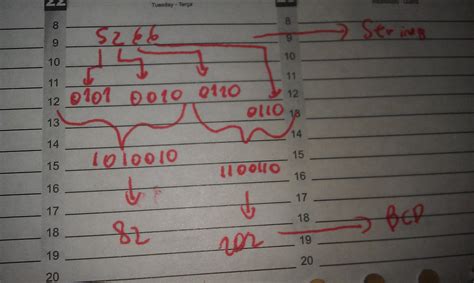 22 Tuesday - Terça
8 8
9 5266 String 9
10 10
11 0101 0010 0110 11
12 0110 12
13 13
14 14
15 1010010 1100110 15
16 16
17 17
18 82 202 BCD 18
19 19
20 20